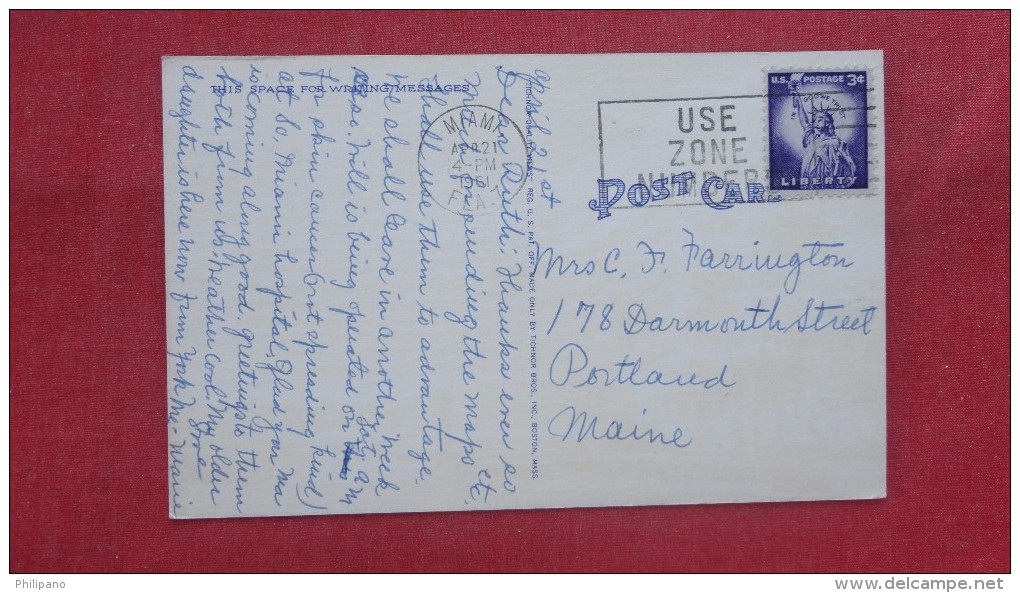 THIS SPACE FOR WRITING MESSAGES
April 21st
Dear Ruth: Thanks ever so
much for sending the maps etc.
Shall use them to advantage.
We shall leave in another week
or so. Will is being operated on Sat. A.M
for skin cancer (not spreading kind)
at So. Miami hospital. Glad your Ma
is coming along good. greetings to them
both from us. Weather cool. My older
daughter is here now from York Me - Marie
Love
MIAMI,
APR 21
4-PM
FLA.
"TICHNOR QUALITY VIEWS" REG. U. S. PAT. OFF. MADE ONLY BY TICHNOR BROS., INC., BOSTON, MASS.
USE
ZONE
NUMBERS
U.S. POSTAGE 3¢
IN GOD WE TRUST
LIBERTY
POST CARD
Mrs C. F. Farrington
178 Darmouth Street
Portland
Maine
Philipano
www.delcampe.net